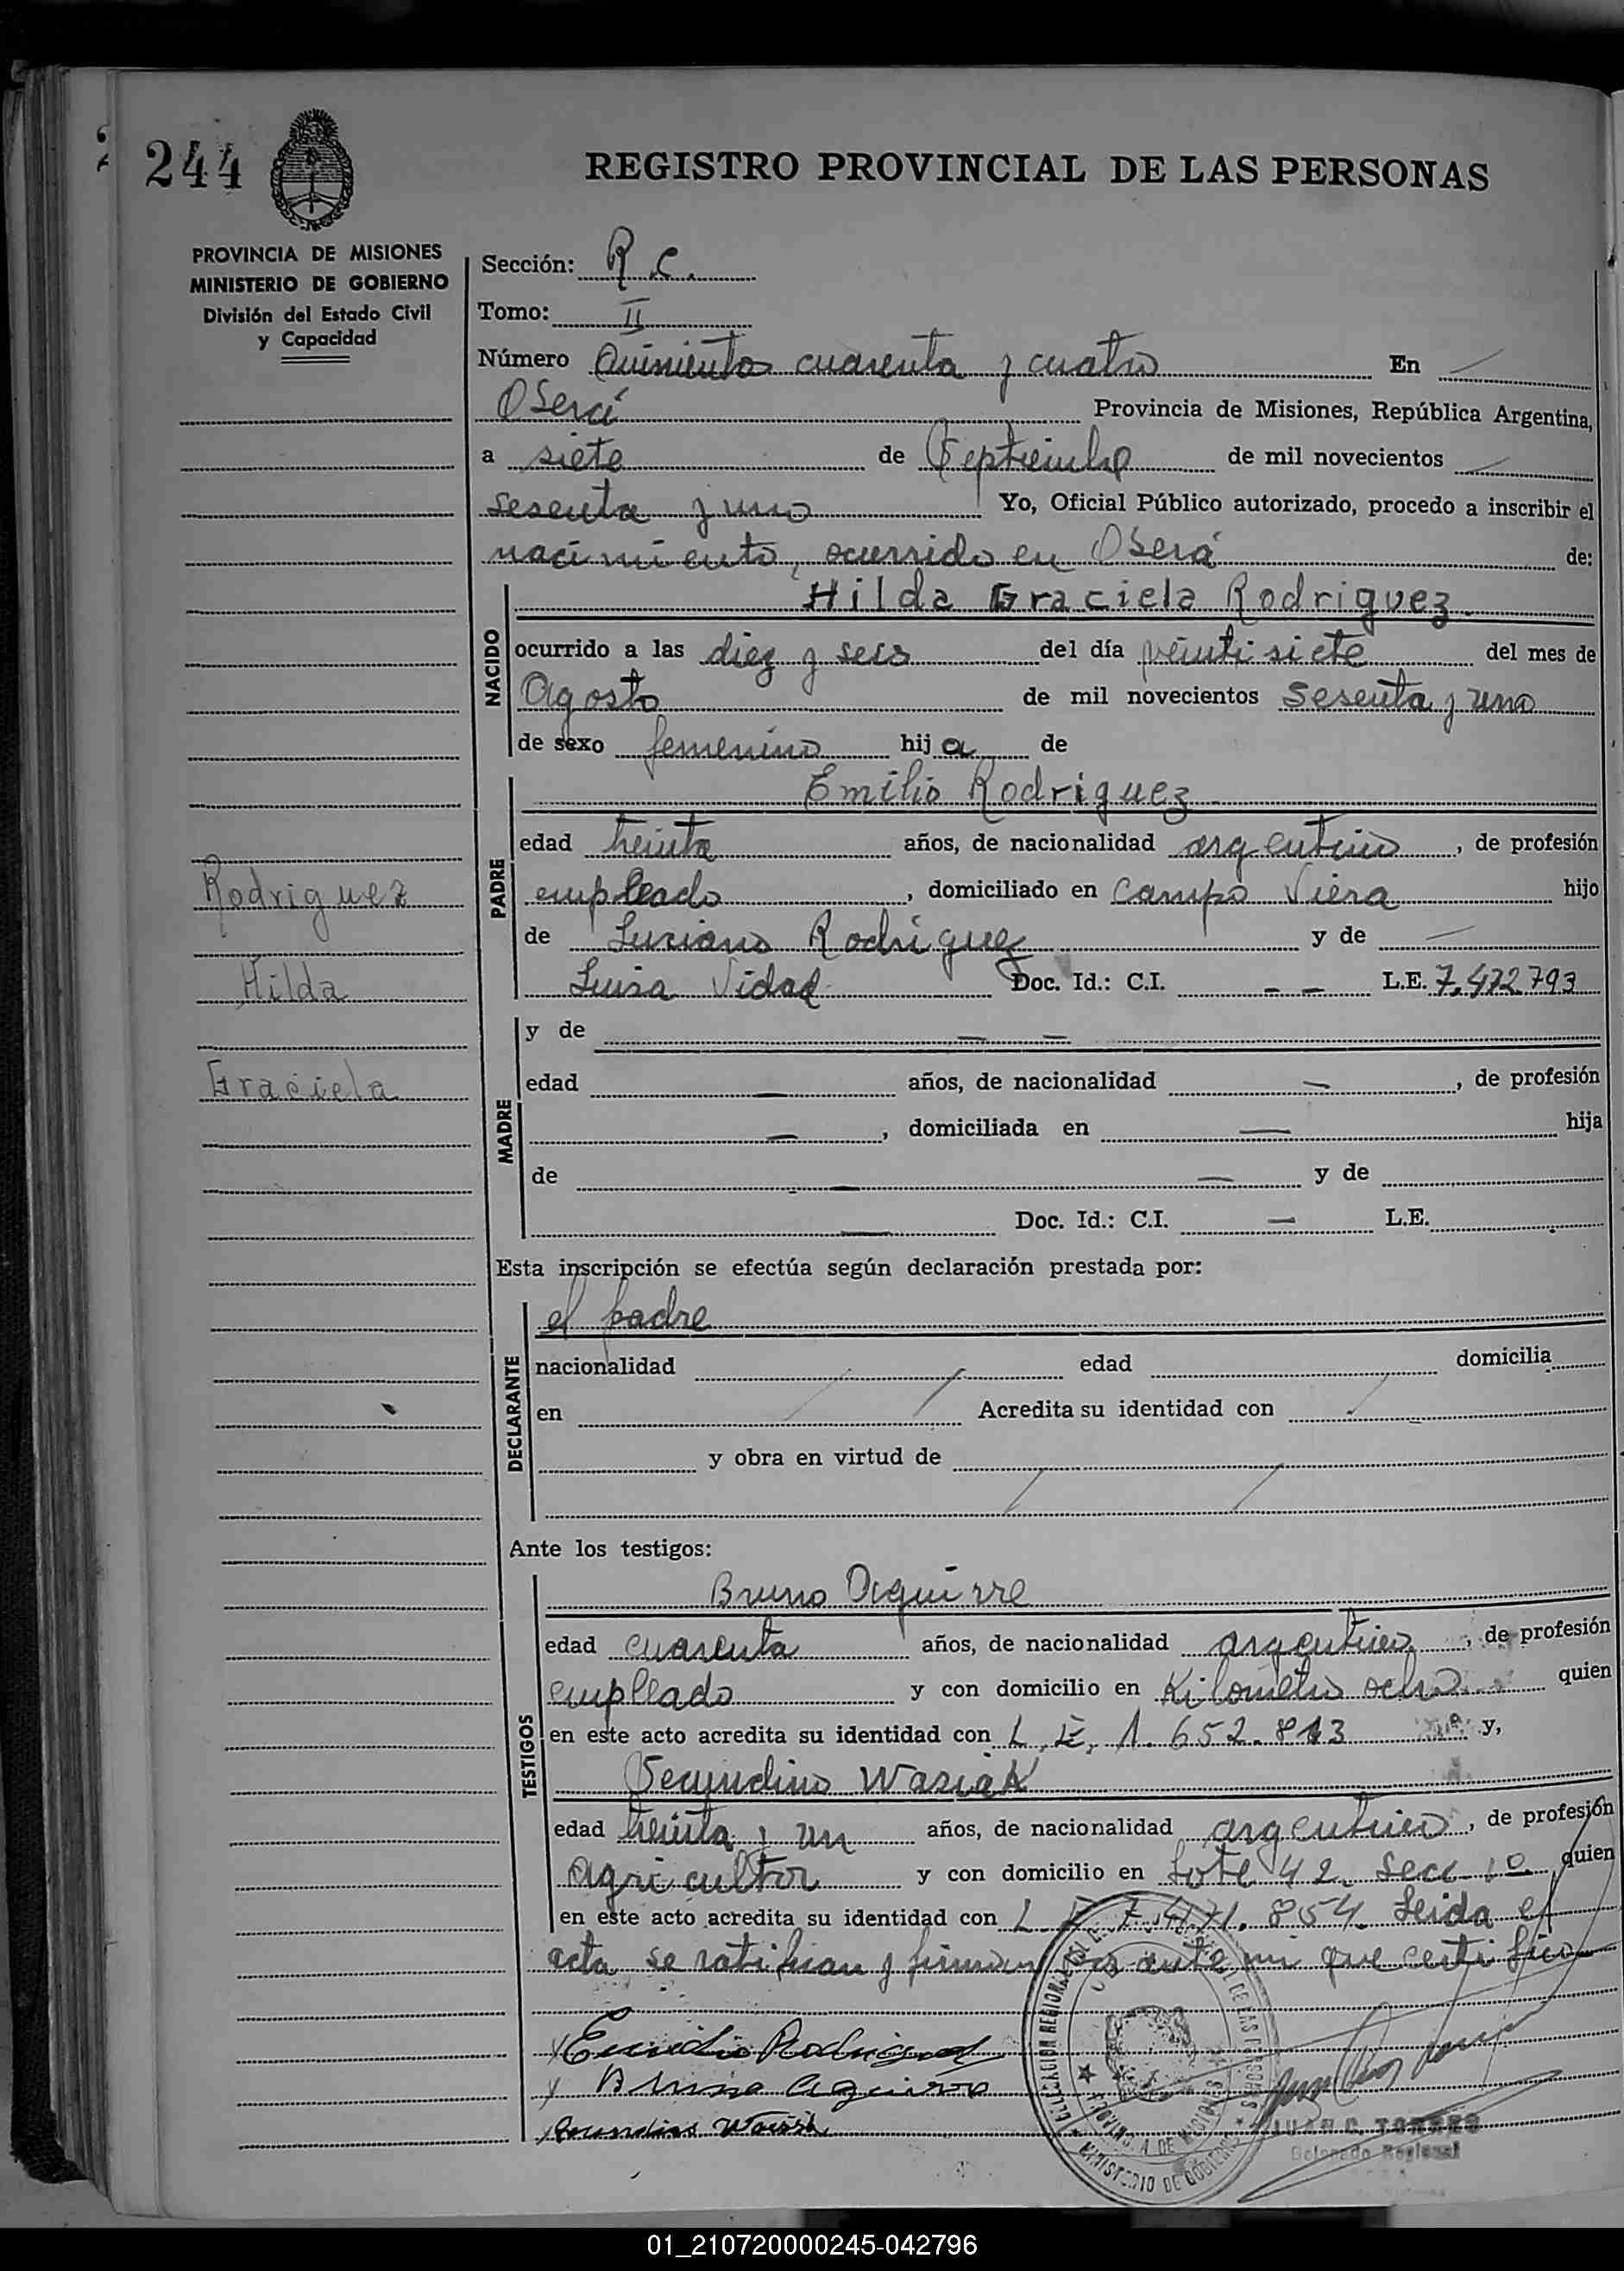 244
REGISTRO PROVINCIAL DE LAS PERSONAS
PROVINCIA DE MISIONES
MINISTERIO DE GOBIERNO
División del Estado Civil
y Capacidad
Sección: R.C.
Tomo: II
Número Quinientos cuarenta y cuatro En
Oberá Provincia de Misiones, República Argentina,
a siete de Septiembre de mil novecientos
sesenta y uno Yo, Oficial Público autorizado, procedo a inscribir el
nacimiento, ocurrido en Oberá de:
NACIDO
Hilda Graciela Rodriguez.
ocurrido a las diez y seis del día veintisiete del mes de
Agosto de mil novecientos sesenta y uno
de sexo femenino hija de
PADRE
Emilio Rodriguez
edad treinta años, de nacionalidad argentino, de profesión
empleado, domiciliado en Campo Viera hijo
de Luciano Rodriguez y de —
Luisa Vidal Doc. Id.: C.I. — — L.E. 7.472.793
Rodriguez
Hilda
Graciela
MADRE
y de — —
edad — años, de nacionalidad —, de profesión
—, domiciliada en — hija
de — — y de
— Doc. Id.: C.I. — L.E.
Esta inscripción se efectúa según declaración prestada por:
DECLARANTE
el padre
nacionalidad edad domicilia
en Acredita su identidad con
y obra en virtud de
Ante los testigos:
TESTIGOS
Bruno Aguirre
edad cuarenta años, de nacionalidad argentino, de profesión
empleado y con domicilio en Kilometro ocho quien
en este acto acredita su identidad con L.E. 1.652.813 y,
Secundino Wasiak
edad treinta y un años, de nacionalidad argentino, de profesión
agricultor y con domicilio en Lote 42. Secc. 1º quien
en este acto acredita su identidad con L.E. 7.471.854. Leida el
acta se ratifican y firman ante mi que certifico
Emilio Rodriguez
Bruno Aguirre
Secundino Wasiak
DELEGACION REGIONAL
PROVINCIA DE MISIONES
MINISTERIO DE GOBIERNO
JUAN C. TORRES
Delegado Regional
01_210720000245-042796